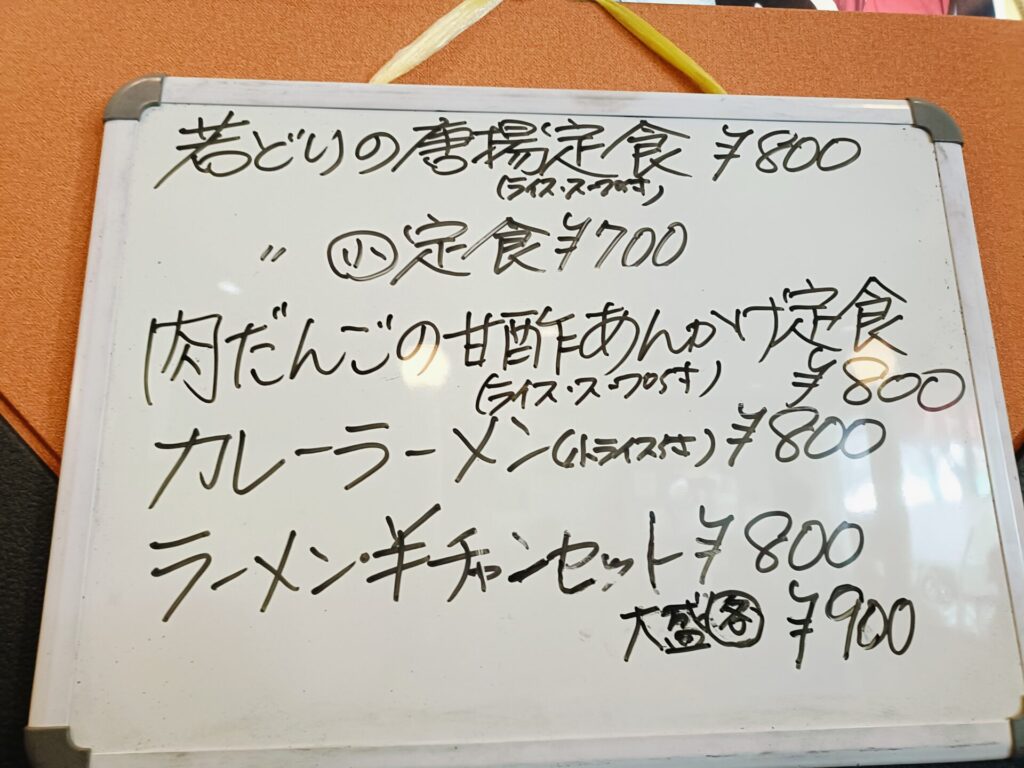 若どりの唐揚定食 ¥800
(ライス・スープ付)
〃 ㊙小定食 ¥700
肉だんごの甘酢あんかけ定食
(ライス・スープ付) ¥800
カレーラーメン(小ライス付) ¥800
ラーメン・半チャンセット ¥800
大盛 ¥900